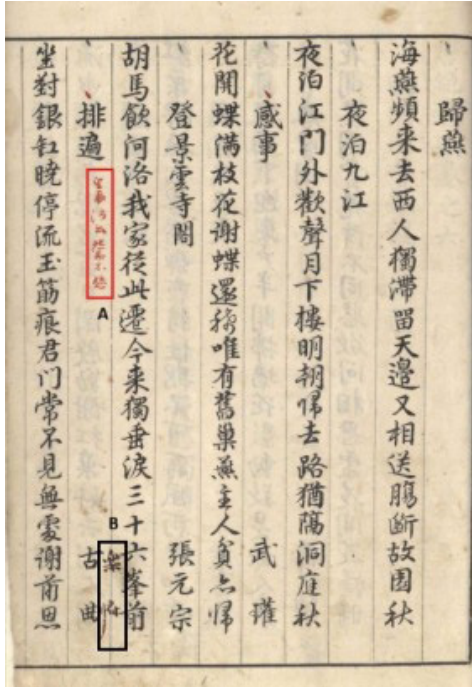 歸燕
海燕頻来去西人獨滯留天邊又相送腸断故园秋
夜泊九江
夜泊江門外歡聲月下樓明朝帰去路猶隔洞庭秋
感事 武瓘
花開蝶满枝花谢蝶還稀唯有舊巢燕主人貧亦帰
登景雲寺閣 張元宗
胡馬飲河洛我家從此遷今来獨垂淚三十六峯前
排遍 古曲
A
B
坐對銀缸曉停流玉筯痕君门常不見無處谢前恩